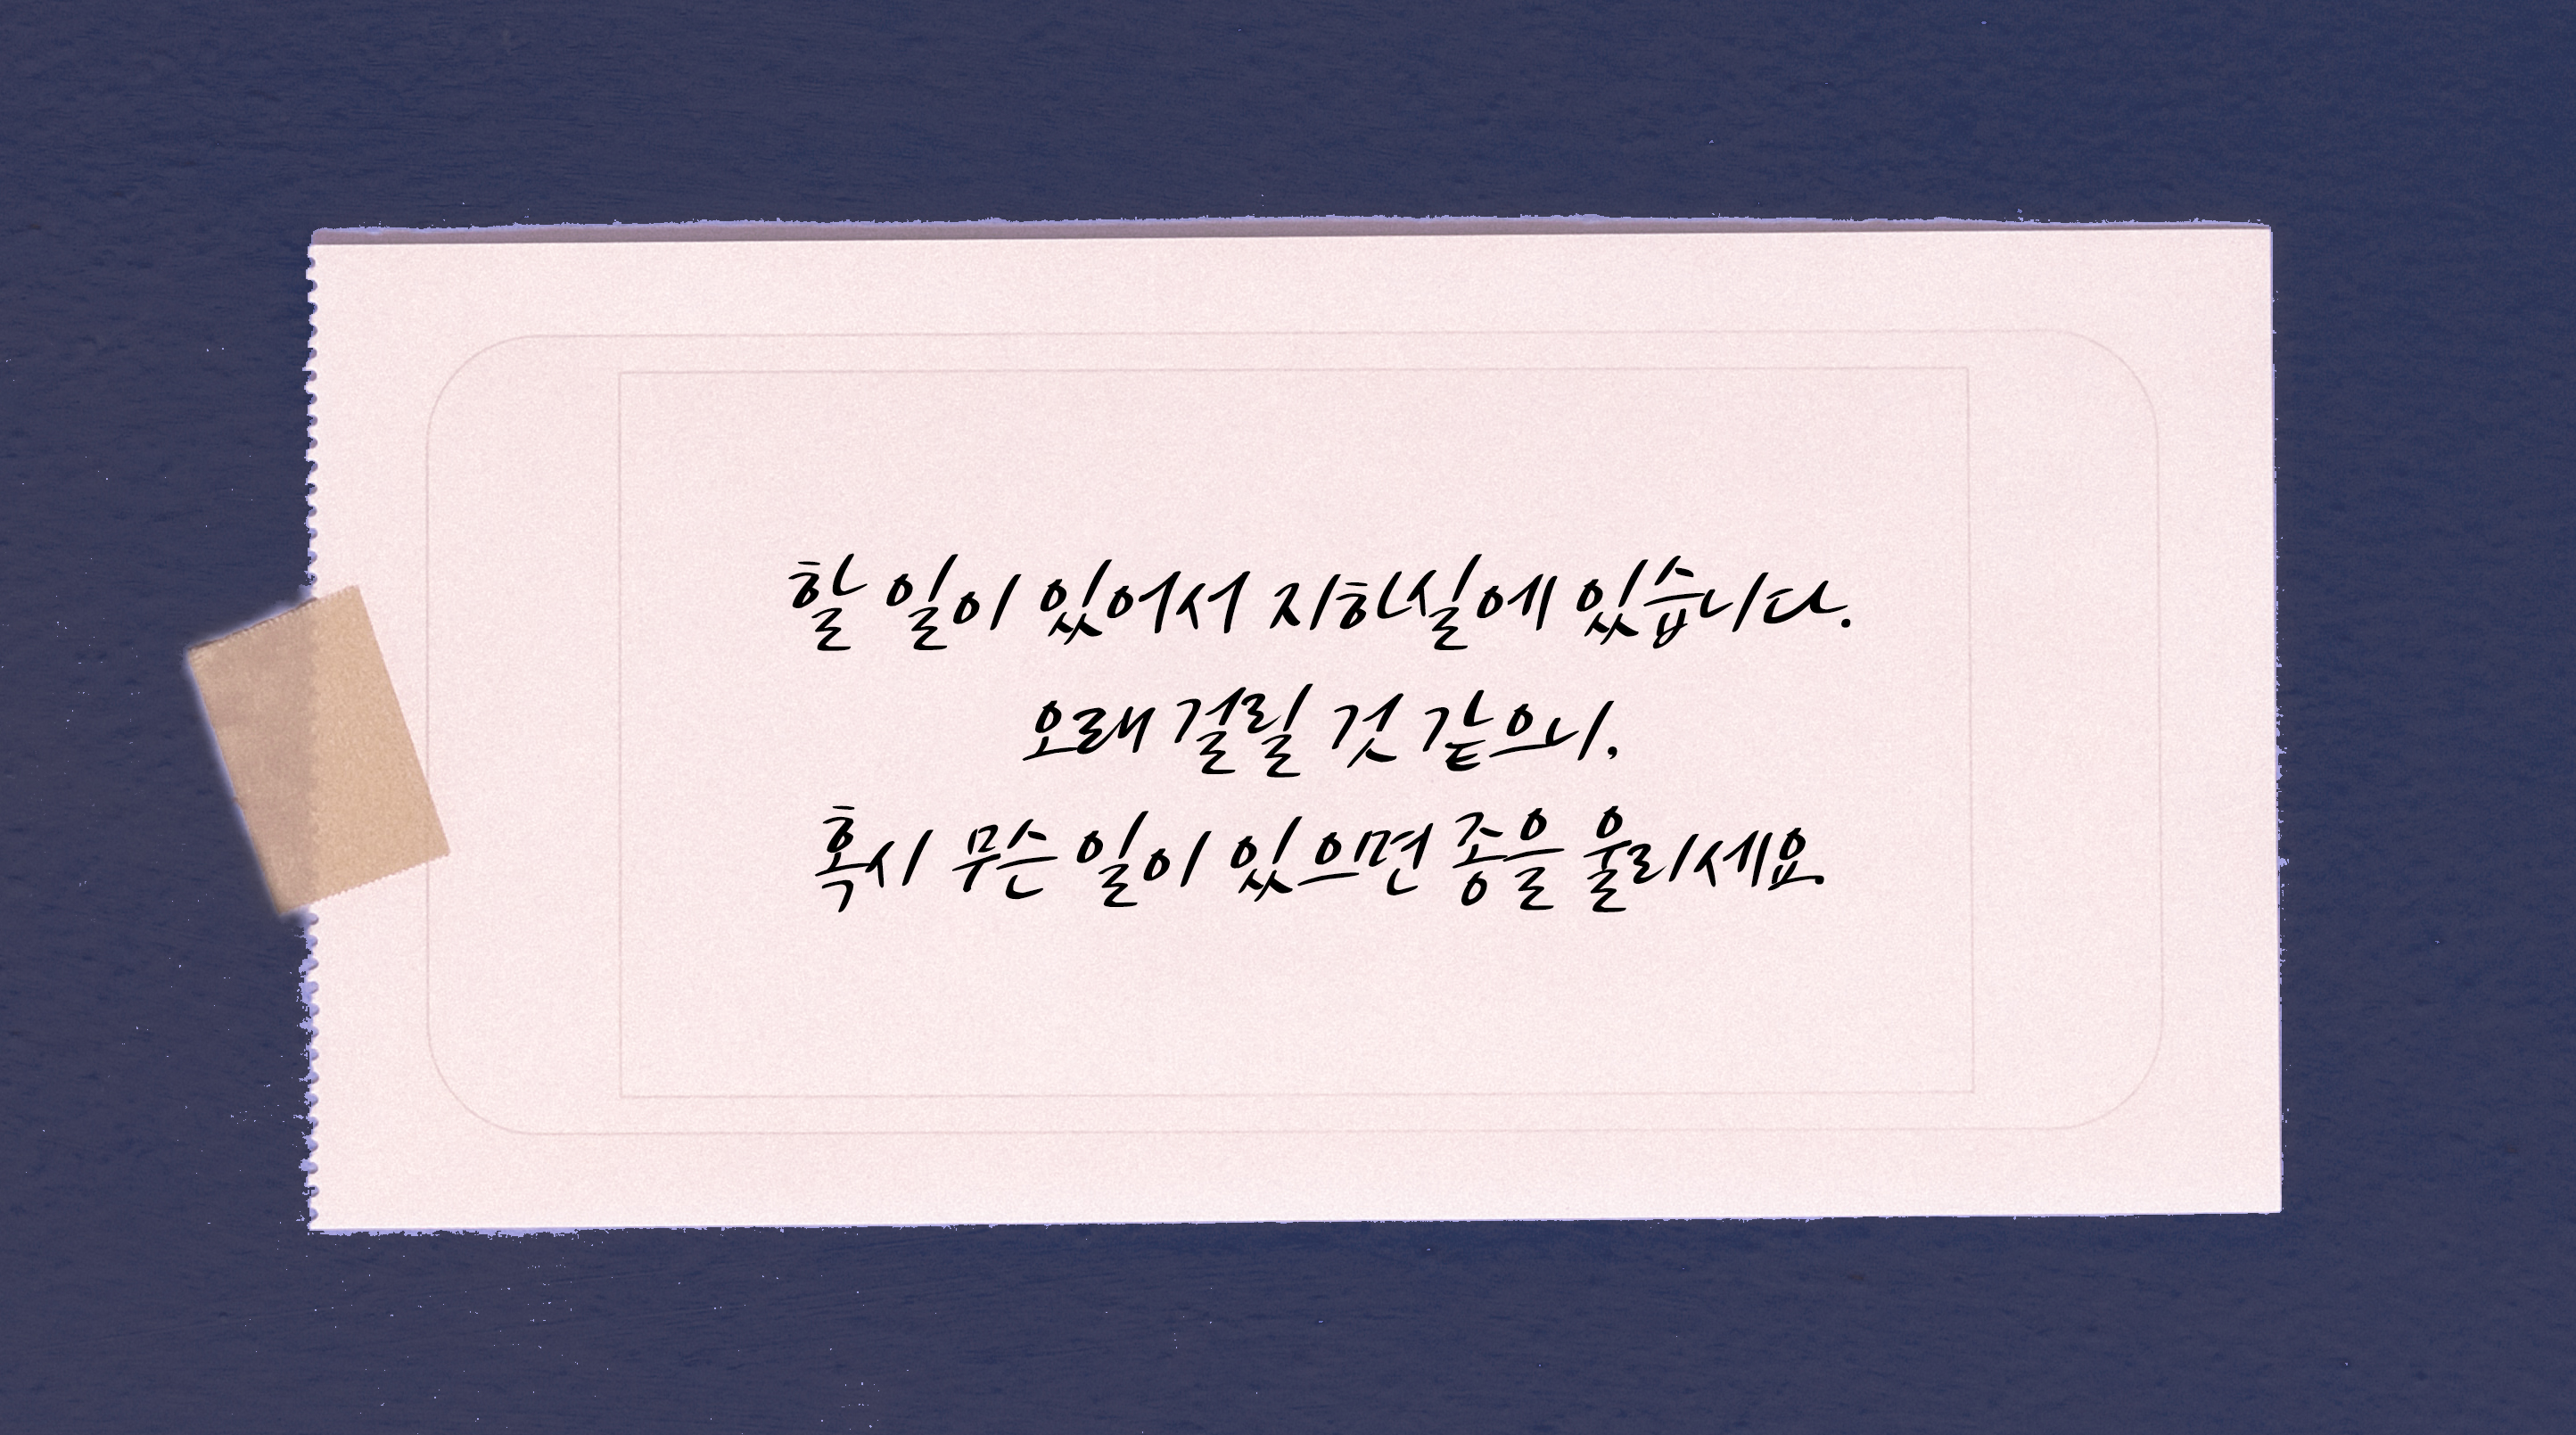 할 일이 있어서 지하실에 있습니다.
오래 걸릴 것 같으니,
혹시 무슨 일이 있으면 종을 울리세요.